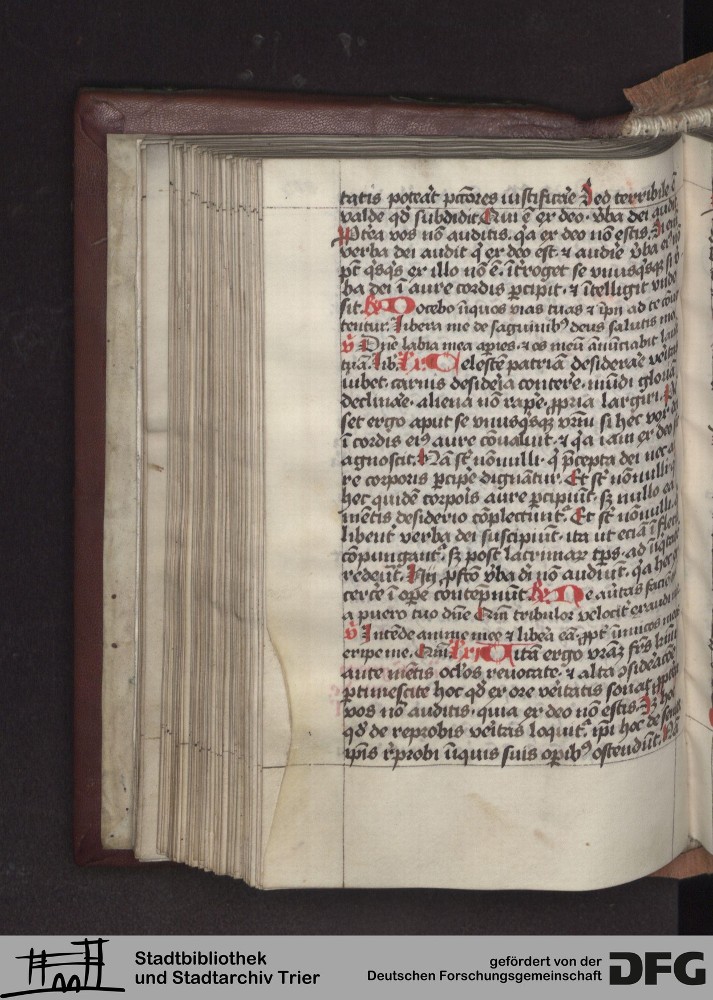 tatis poteāt pctōres iustificāre Sed terribile ē
valde qđ subdidit. Qui ē ex deo vba dei audit
Ptea vos nō auditis. qa ex deo nō estis. Si eni
verba dei audit q ex deo est. ⁊ audie vba ei nō
pt qsqs ex illo nō ē. ītroget se vnusqsqz si v
ba dei ī aure cordis pcipit. ⁊ ītelligit vnde
sit. Docebo īiquos vias tuas ⁊ īpii ad te cōu
tentur. Libera me de saguinibꝰ deus salutis me
Dne labia mea apies. ⁊ os meū ānūciabit lau
tuā. Lib. Celestē patriā desiderare veritas
iubet. carnis desideria contere. mūdi gloriā
declinare. aliena nō rape. ppria largiri. Pē
set ergo aput se vnusqsqz vrm si hec vox dei
ī cordis eiꝰ aure cōualuit. ⁊ qa iam ex deo sit
agnoscit. Nā st nōnulli. q pcepta dei nec au
re corporis pcipe dignātur. Et st nōnulli q
hec quidē corpois aure pcipiūt. sz nullo ea
mētis desiderio cōplectunt. Et st nōnulli. q
libent verba dei suscipiūt. ita ut eciā ī fletibꝰ
cōpungant. sz post lacrimaz tps. ad īiqtatē
redeūt. Hii pfcto vba di nō audiūt. qa hec ex
cerce ī ope contepnunt. Ne auertas faciē
a puero tuo dne Qm tribulor velocit exaudi
Intēde anime mee ⁊ libea eā. ppt inimicos meos
eripe me. Qm. Vitā ergo vraz frs kmi
ante mētis oclos reuocate. ⁊ alta ꝯsideracōe
ptimescite hoc qđ ex ore veitatis sonat. pptea
vos nō auditis. quia ex deo nō estis. Sz hoc
qđ de reprobis veitas loquit. ipi hoc de se
ipis rprobi īiquis suis opibꝰ ostendūt. Nā
Stadtbibliothek
und Stadtarchiv Trier
gefördert von der
Deutschen Forschungsgemeinschaft
DFG